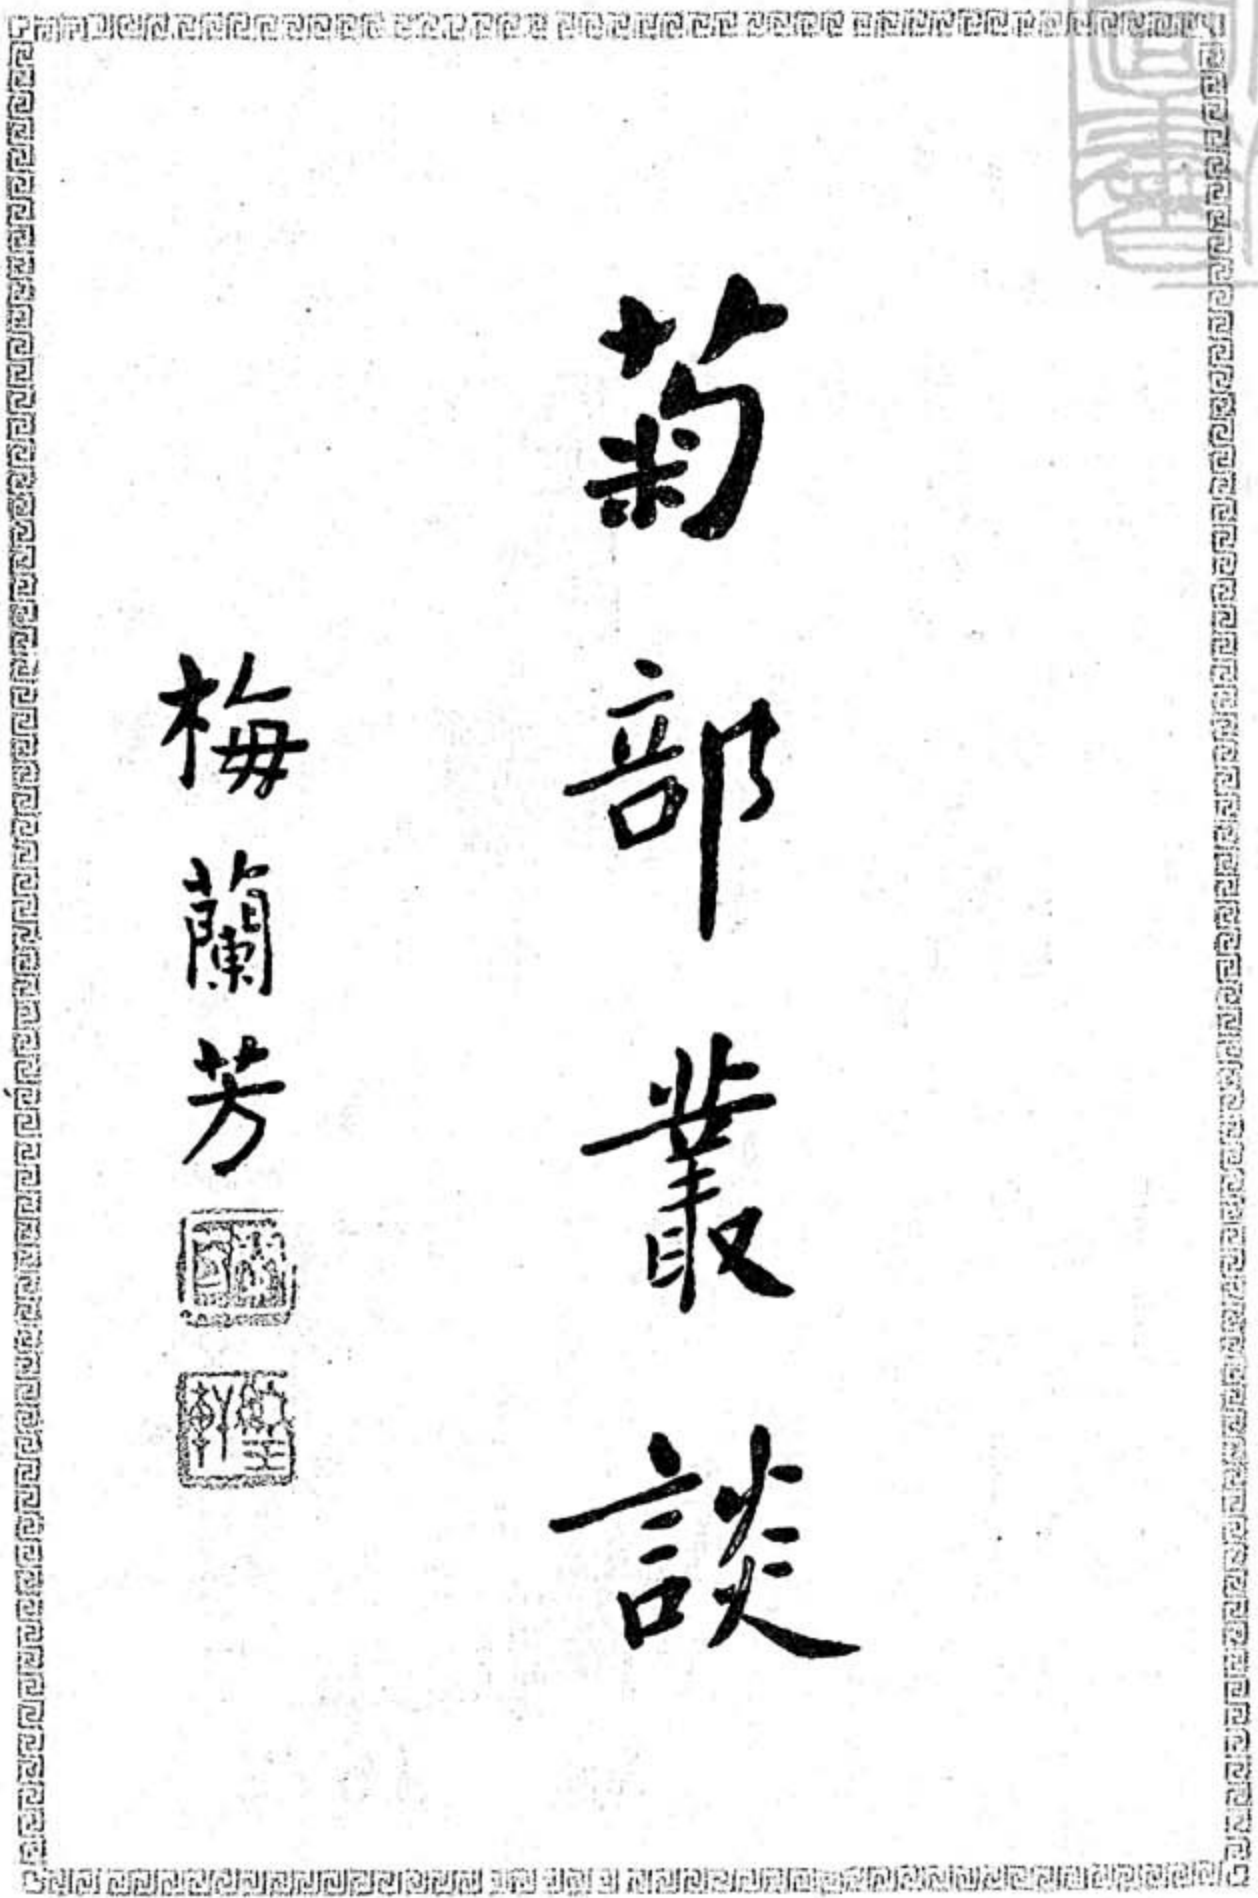 菊部叢談
梅蘭芳